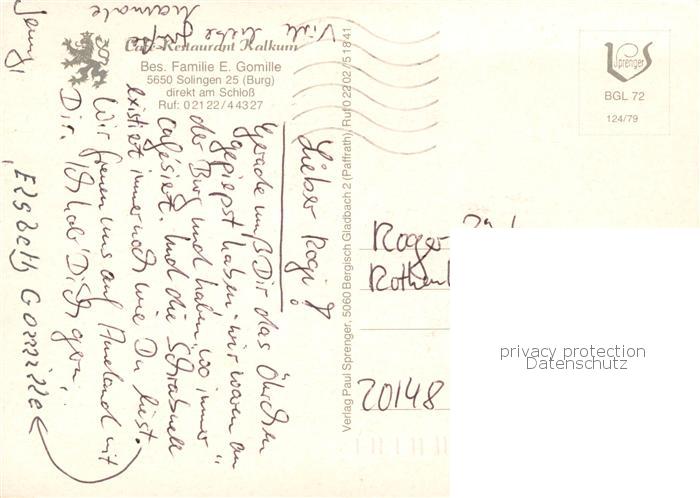 Café-Restaurant Kalkum
Bes. Familie E. Gomille
5650 Solingen 25 (Burg)
direkt am Schloß
Ruf: 0 21 22 / 4 43 27
Lieber Rogi!
gerade muß Dir das Öhrchen
gepiepst haben - wir waren an
der Burg und haben, wo immer
existiert immer noch wie Du liest.
Wir freuen uns auf Ameland mit
Dir. Ich hab' Dich gern!
Viele liebe Grüße
Elsbeth Gomille
Verlag Paul Sprenger, 5060 Bergisch Gladbach 2 (Paffrath), Ruf 0 22 02 / 5 18 41
Sprenger
BGL 72
124/79
Roger
20148
privacy protection
Datenschutz